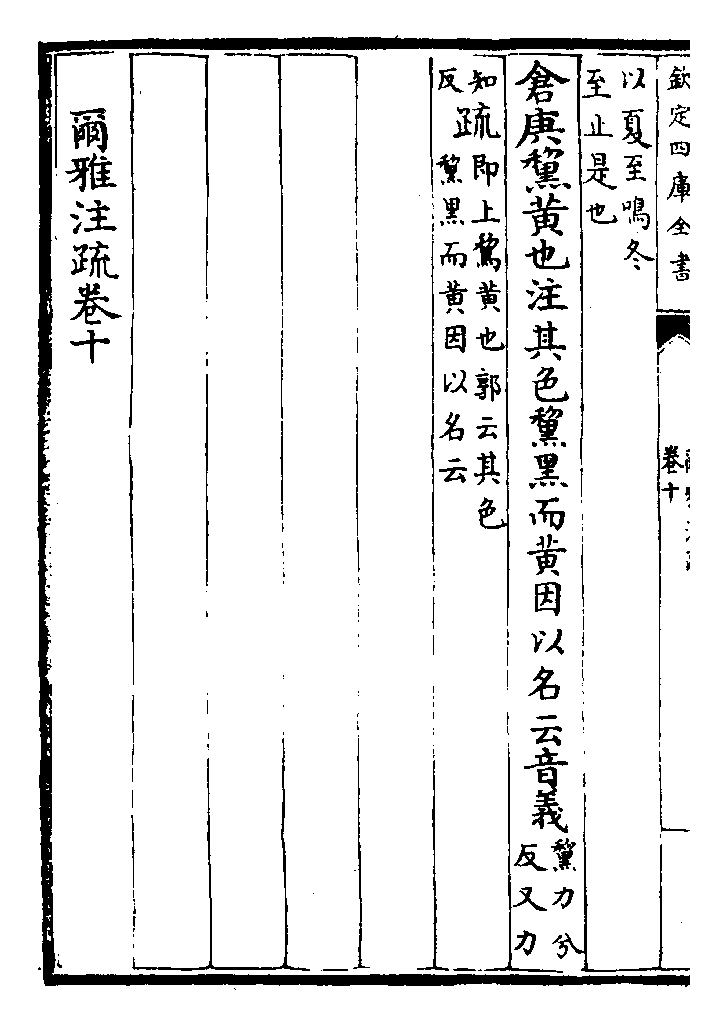 欽定四庫全書
卷十
以夏至鳴冬
至止是也
倉庚黧黄也注其色黧黑而黄因以名云音義
黧力兮
反又力
知
反
疏
即上鵹黄也郭云其色
黧黑而黄因以名云
爾雅注疏卷十